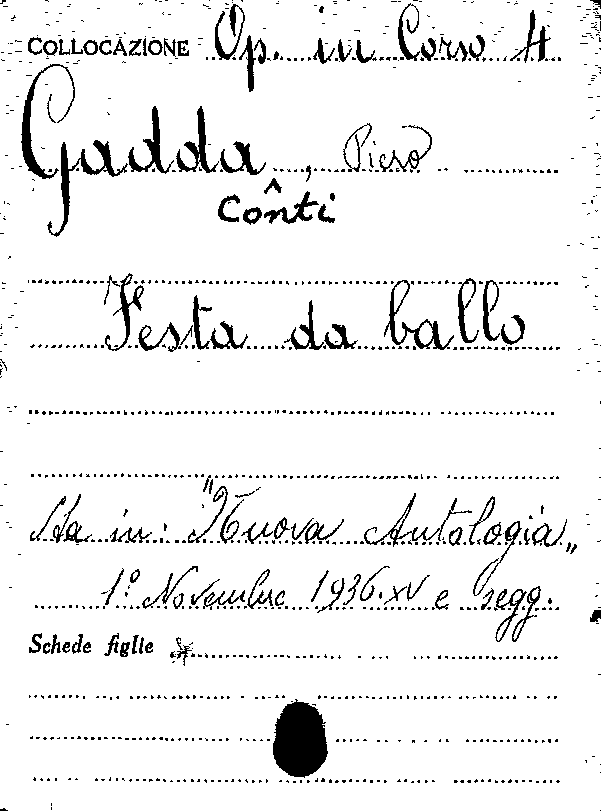 COLLOCAZIONE Op. in Corso 4
Gadda, Piero
^
Conti
Festa da ballo
Sta in: "Nuova Antologia„
1° Novembre 1936.XV e segg.
Schede figlie